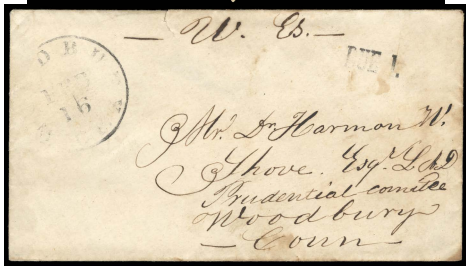 W. Es.
DUE 1
FEB
16
Mr. Dr Harmon W.
Shove. Esqr.
Prudential comitee
Woodbury
Conn